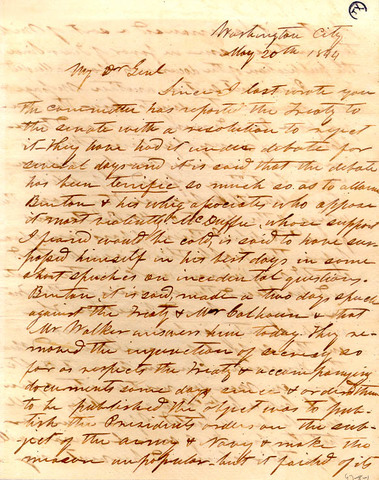 Washington City
May 20th 1844
My Dr Genl
Since I last wrote you
the committee has reported the Treaty to
the senate with a resolution to reject
it they have had it under debate for
several days and it is said that the debate
has been terrific so much so as to alarm
Benton & his whig associates who oppose
it most violently McDuffie, whose support
I feared would be cold, is said to have sur-
passed himself in his best days in some
short speeches on incidental questions.
Benton it is said, made a two days speech
against the Treaty & Mr Calhoun & that
Mr Walker answers him today. They re-
moved the injunction of secrecy so
far as respects the Treaty & accompanying
documents some days since & ordered them
to be published the object was to pub-
lish the Presidents orders on the sub-
ject of the army & Navy & make the
measure unpopular but it failed of its